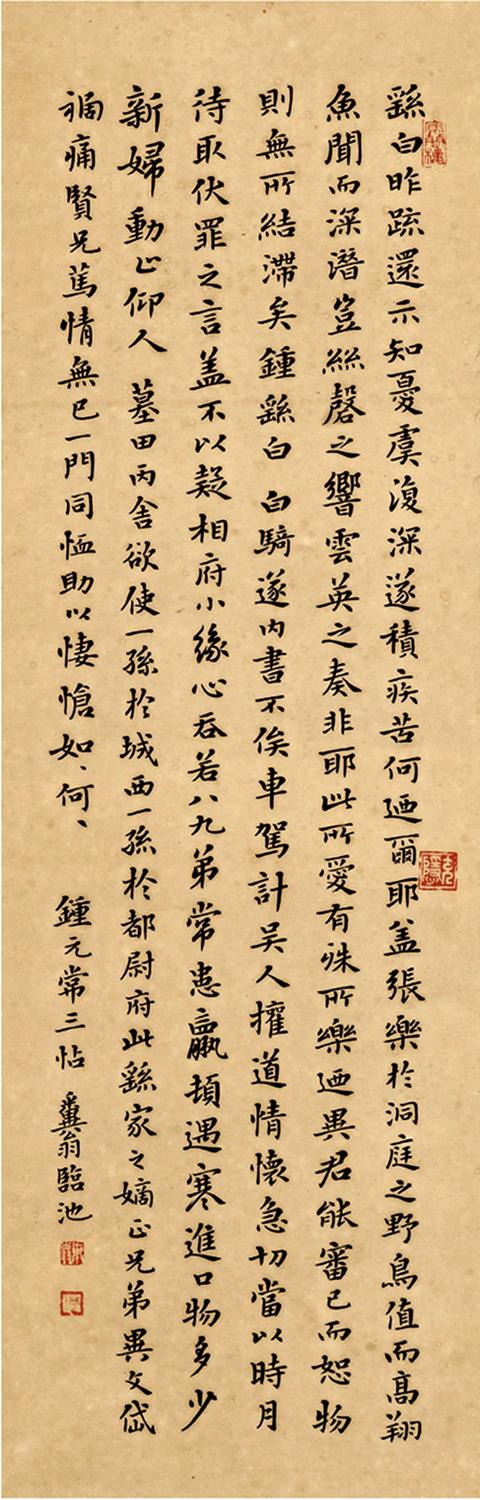 繇白昨疏還示知憂虞復深遂積疾苦何迺爾耶蓋張樂於洞庭之野鳥值而高翔
魚聞而深潛豈絲磬之響雲英之奏非耶此所愛有殊所樂迺異君能審己而恕物
則無所結滯矣鍾繇白 白騎遂內書不俟車駕計吳人權道情懷急切當以時月
待取伏罪之言蓋不以疑相府小緣心吞若八九弟常患羸頓遇寒進口物多少
新婦動止仰人 墓田丙舍欲使一孫於城西一孫於都尉府此繇家之嫡正兄弟異文岱
禍痛賢兄篤情無已一門同恤助以悽愴如、何、 鍾元常三帖 糞翁臨池